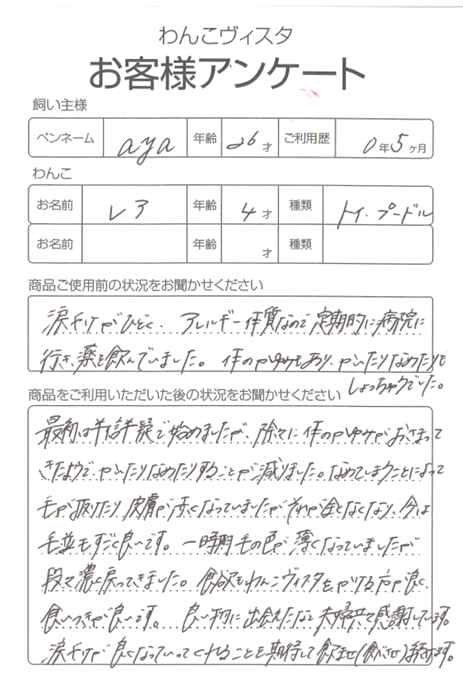 わんこヴィスタ
お客様アンケート
飼い主様
ペンネーム aya 年齢 26才 ご利用歴 0年5ヶ月
わんこ
お名前 レア 年齢 4才 種類 トイ・プードル
お名前 年齢 才 種類
商品ご使用前の状況をお聞かせください
涙ヤケがひどく、アレルギー体質なので定期的に病院に
行き、薬を飲んでいました。体のかゆみもあり、かいたりなめたりも
しょっちゅうでした。
商品をご利用いただいた後の状況をお聞かせください
最初は半信半疑で始めましたが、除々に体のかゆみがおさまって
きたようでかいたりなめたりすることが減りました。なめてしまうことによって
毛が抜けたり皮膚が赤くなっていましたがそれが全くなくなり、今は
毛並もすごく良いです。一時期毛の色が薄くなっていましたが
段々濃く戻ってきました。食欲もわんこヴィスタをかける方が良く、
食いつきが良いです。良い物に出会えたなと夫婦共々感謝しています。
涙ヤケが良くなっていってくれることを期待して飲ませ(食べさせ)続けます。